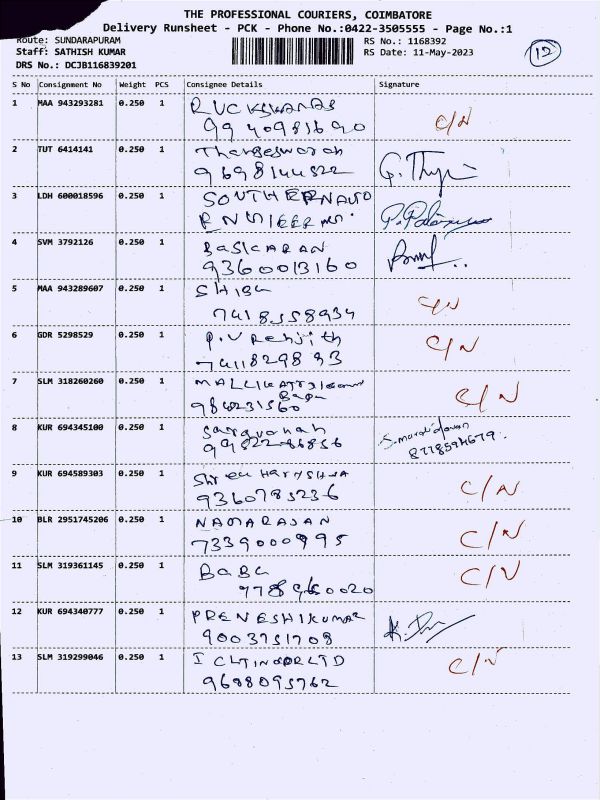 THE PROFESSIONAL COURIERS, COIMBATORE
Delivery Runsheet - PCK - Phone No.:0422-3505555 - Page No.:1
Route: SUNDARAPURAM
RS No.: 1168392
Staff: SATHISH KUMAR
RS Date: 11-May-2023
DRS No.: DCJB116839201
12
S No Consignment No Weight PCS Consignee Details Signature
1 MAA 943293281 0.250 1
C/N
2 TUT 6414141 0.250 1
3 LDH 600018596 0.250 1 SOUTHERN AUTO
4 SVM 3792126 0.250 1 BASKARAN
9360013160
5 MAA 943289607 0.250 1 SHIBU
7418358934 C/N
6 GDR 5298529 0.250 1 P.V Renjith
C/N
7 SLM 318260260 0.250 1
C/N
8 KUR 694345100 0.250 1 Saravanan
8778594679.
9 KUR 694589303 0.250 1
9360783236 C/N
10 BLR 2951745206 0.250 1 NAGARAJAN
7339000995 C/N
11 SLM 319361145 0.250 1 BABU
C/N
12 KUR 694340777 0.250 1 PRENESHKUMAR
9003751708
13 SLM 319299046 0.250 1
9688095762 C/N